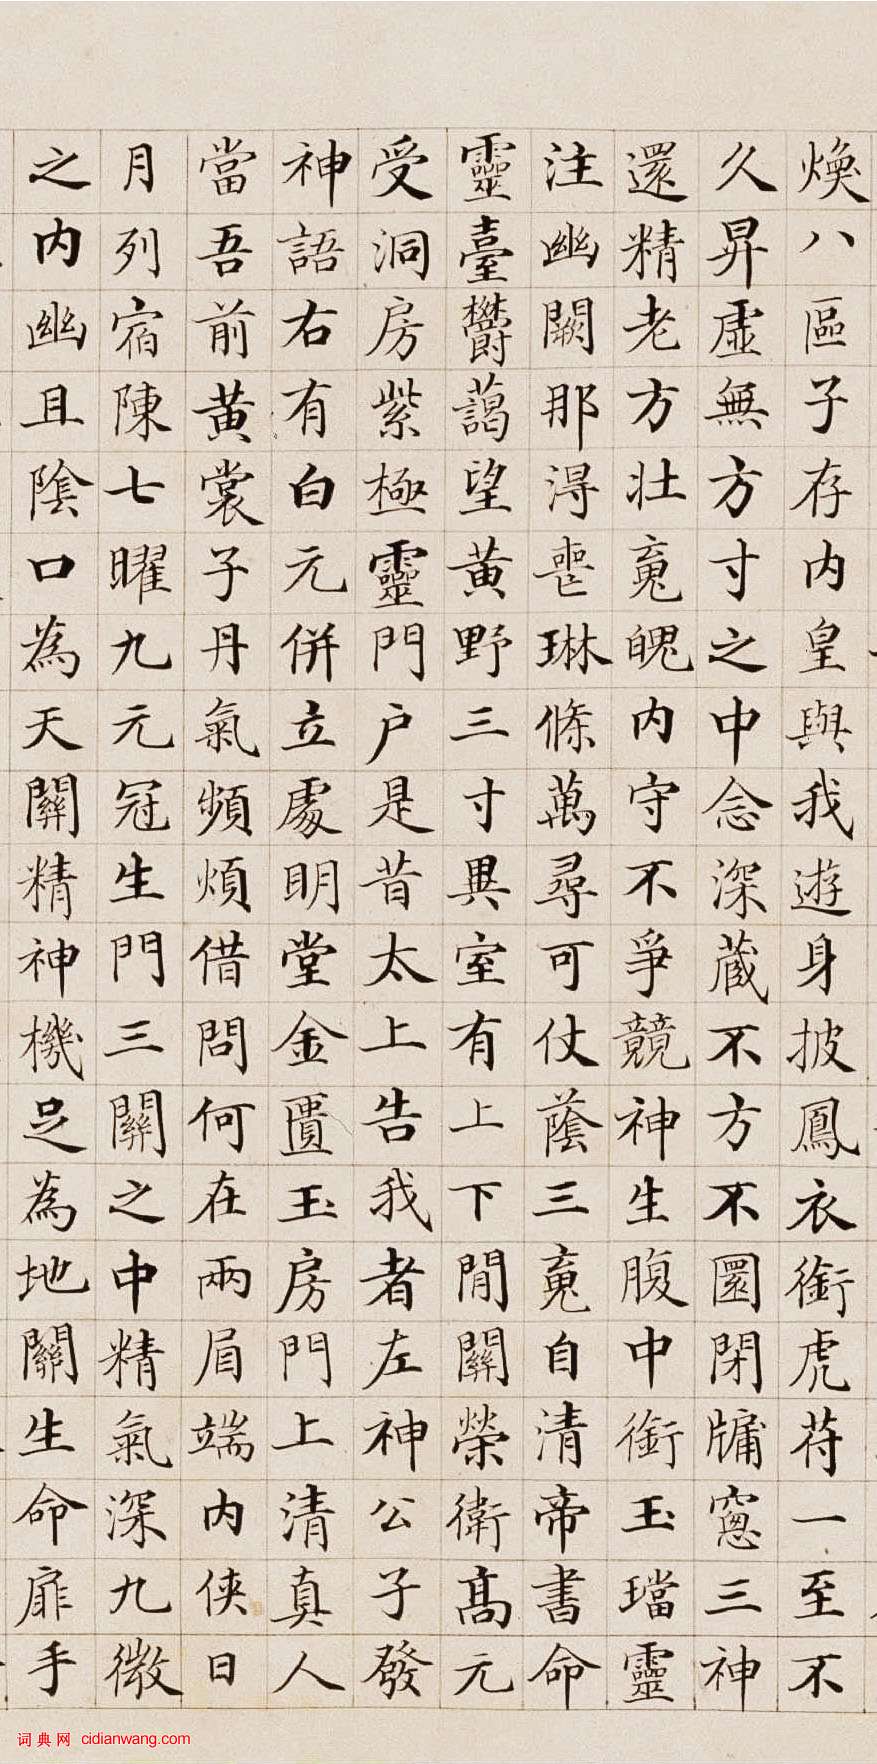 煥八區子存内皇與我遊身披鳳衣銜虎苻一至不
久昇虛無方寸之中念深蔵不方不圎閇牖窻三神
還精老方壮䰟魄内守不爭競神生腹中銜玉璫靈
注幽闕那淂喪琳條萬尋可仗蔭三䰟自清帝書命
靈臺欝藹望黄野三寸異室有上下閒關榮衛髙元
受洞房紫極靈門户是昔太上告我者左神公子發
神語右有白元併立處明堂金匱玉房門上清真人
當吾前黄裳子丹氣頻煩借問何在兩眉端内侠日
月列宿陳七曜九元冠生門三關之中精氣深九微
之内幽且陰口為天關精神機足為地關生命扉手
词典网 cidianwang.com